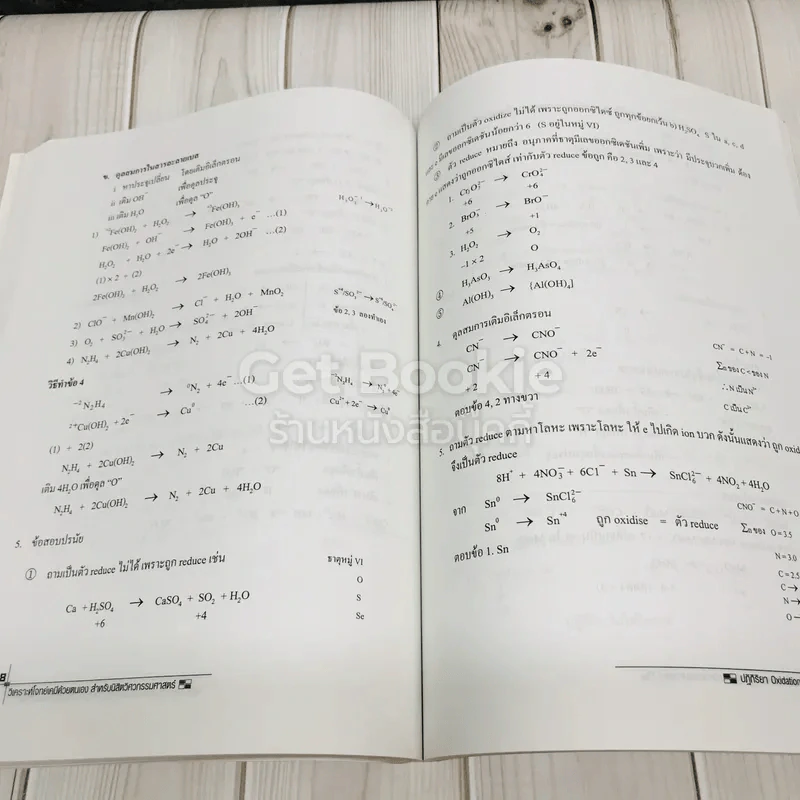 ข. ดุลสมการในสารละลายเบส
i หาประจุเปลี่ยน โดยเติมอิเล็กตรอน
ii เติม OH⁻ เพื่อดุลประจุ
iii เติม H₂O เพื่อดุล "O"
1) Fe(OH)₂ + H₂O₂ → Fe(OH)₃
Fe(OH)₂ + OH⁻ → Fe(OH)₃ + e⁻ ...(1)
H₂O₂ + H₂O + 2e⁻ → H₂O + 2OH⁻ ...(2)
(1) × 2 + (2)
2Fe(OH)₂ + H₂O₂ → 2Fe(OH)₃
2) ClO⁻ + Mn(OH)₂ → Cl⁻ + H₂O + MnO₂
3) O₂ + SO₃²⁻ + H₂O → SO₄²⁻ + 2OH⁻
ข้อ 2, 3 ลองทำเอง
4) N₂H₄ + 2Cu(OH)₂ → N₂ + 2Cu + 4H₂O
วิธีทำข้อ 4
⁻²N₂H₄ → ⁰N₂ + 4e⁻ ...(1)
²⁺Cu(OH)₂ + 2e⁻ → Cu⁰ ...(2)
Cu²⁺+2e⁻ → Cu⁰
(1) + 2(2)
N₂H₄ + 2Cu(OH)₂ → N₂ + 2Cu
เติม 4H₂O เพื่อดุล "O"
N₂H₄ + 2Cu(OH)₂ → N₂ + 2Cu + 4H₂O
5. ข้อสอบปรนัย
① ถามเป็นตัว reduce ไม่ได้ เพราะถูก reduce เช่น ธาตุหมู่ VI
O
Ca + H₂SO₄ → CaSO₄ + SO₂ + H₂O S
+6 +4 Se
วิเคราะห์โจทย์เคมีด้วยตนเอง สำหรับนิสิตวิศวกรรมศาสตร์
② ถามเป็นตัว oxidize ไม่ได้ เพราะถูกออกซิไดซ์ ถูกทุกข้อยกเว้น b) H₂SO₄ S ใน a, c, d
มีเลขออกซิเดชันน้อยกว่า 6 (S อยู่ในหมู่ VI)
③ ตัว reduce หมายถึง อนุภาคที่ธาตุมีเลขออกซิเดชันเพิ่ม เพราะว่า มีประจุบวกเพิ่ม ต้อง
แสดงว่าถูกออกซิไดส์ เท่ากับตัว reduce ข้อถูก คือ 2, 3 และ 4
1. Cr₂O₇²⁻ → CrO₄²⁻
+6 +6
2. BrO₃⁻ → BrO⁻
+5 +1
3. H₂O₂ → O₂
−1 × 2 O
④ H₃AsO₃ → H₃AsO₄
⑤ Al(OH)₃ → {Al(OH)₄]
4. ดุลสมการเติมอิเล็กตรอน
CN⁻ → CNO⁻
CN⁻ = C + N = −1
CN⁻ → CNO⁻ + 2e⁻
+2 +4
∴ N เป็น N³⁻
C เป็น C²⁺
ตอบข้อ 4, 2 ทางขวา
5. ถามตัว reduce ตามหาโลหะ เพราะโลหะ ให้ e ไปเกิด ion บวก ดังนั้นแสดงว่า ถูก oxid
จึงเป็นตัว reduce
8H⁺ + 4NO₃⁻ + 6Cl⁻ + Sn → SnCl₆²⁻ + 4NO₂ + 4H₂O
จาก Sn⁰ → SnCl₆²⁻
CNO⁻ = C + N + O
Sn⁰ → Sn⁺⁴ ถูก oxidise = ตัว reduce
O = 3.5
ตอบข้อ 1. Sn
N = 3.0
C = 2.5
C →
N →
O —
ปฏิกิริยา Oxidation
Get Bookie
ร้านหนังสือบุ๊คกี้